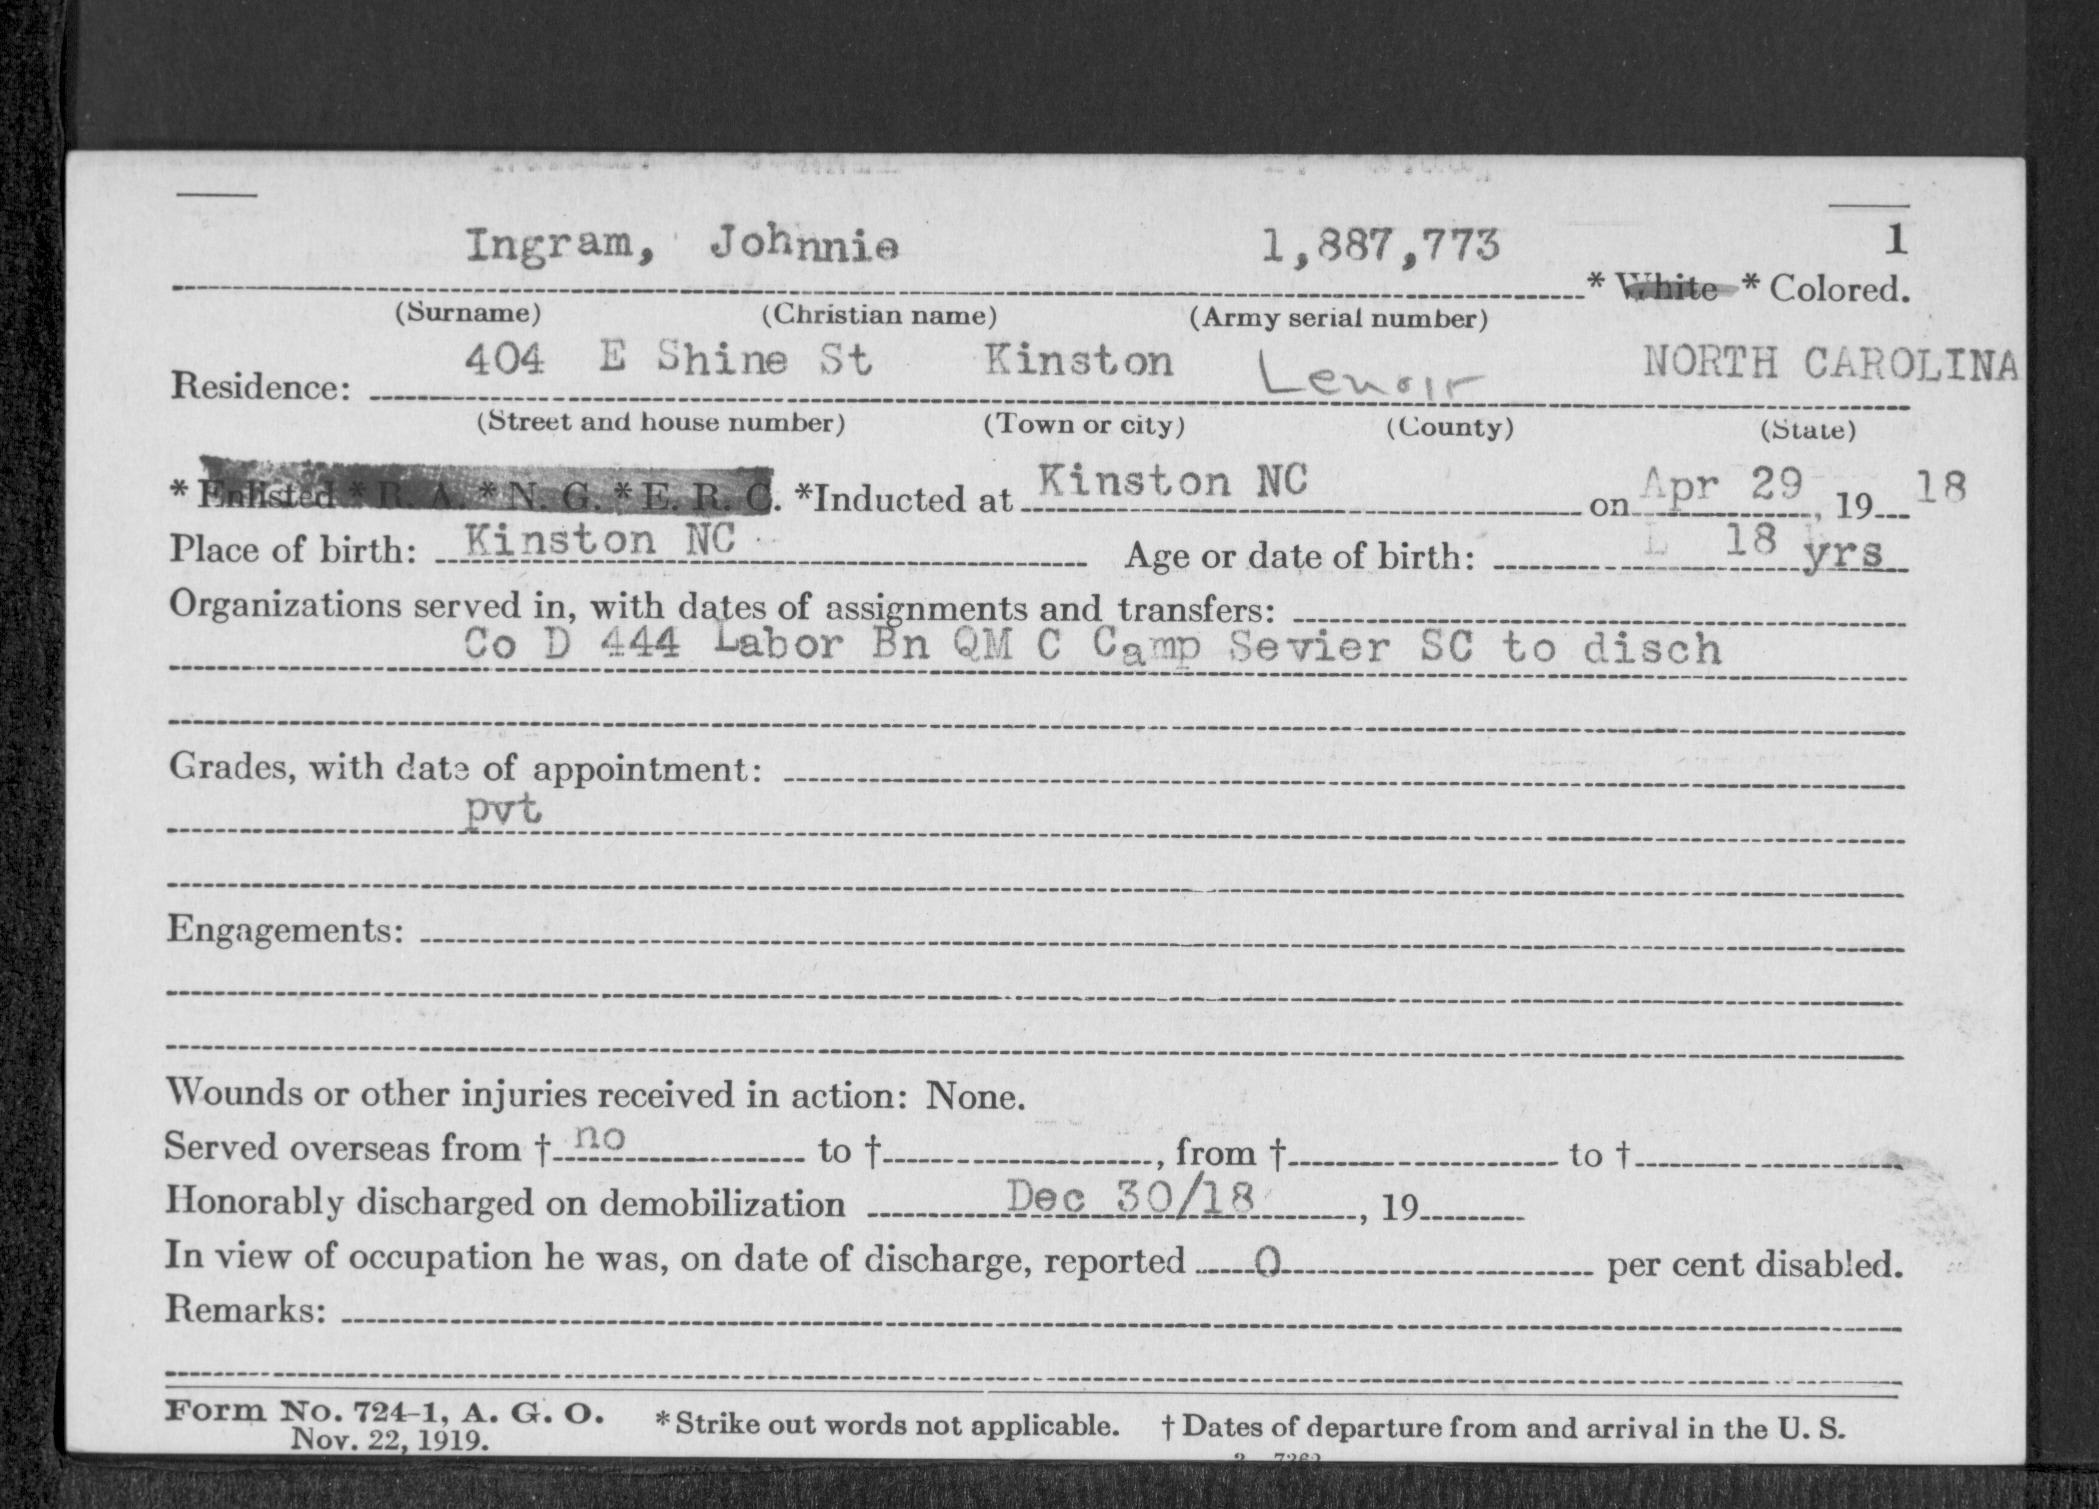 Ingram, Johnnie 1,887,773 1
* White * Colored.
(Surname) (Christian name) (Army serial number)
404 E Shine St Kinston Lenoir NORTH CAROLINA
Residence:
(Street and house number) (Town or city) (County) (State)
* Enlisted * R. A. * N. G. * E. R. C. *Inducted at Kinston NC on Apr 29, 19 18
Place of birth: Kinston NC Age or date of birth: 18 yrs
Organizations served in, with dates of assignments and transfers:
Co D 444 Labor Bn QM C Camp Sevier SC to disch
Grades, with date of appointment:
pvt
Engagements:
Wounds or other injuries received in action: None.
Served overseas from † no to †, from † to †
Honorably discharged on demobilization Dec 30/18, 19
In view of occupation he was, on date of discharge, reported 0 per cent disabled.
Remarks:
Form No. 724-1, A. G. O. * Strike out words not applicable. † Dates of departure from and arrival in the U. S.
Nov. 22, 1919.